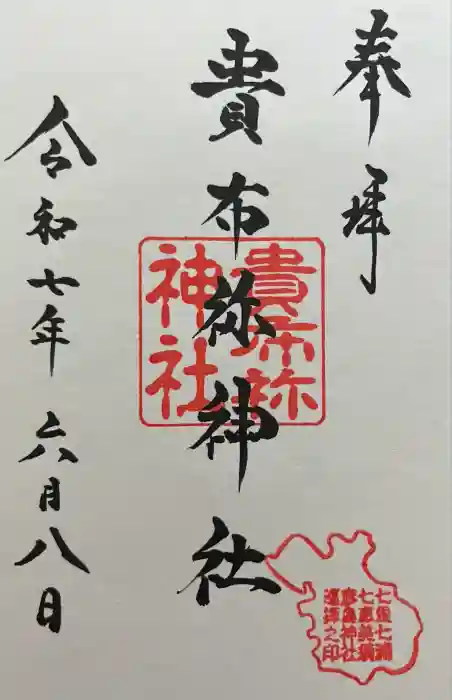 奉拝
貴布祢神社
貴布祢
神社
令和七年 六月八日
七浦七浦
七恵美須
恵美神社
之印